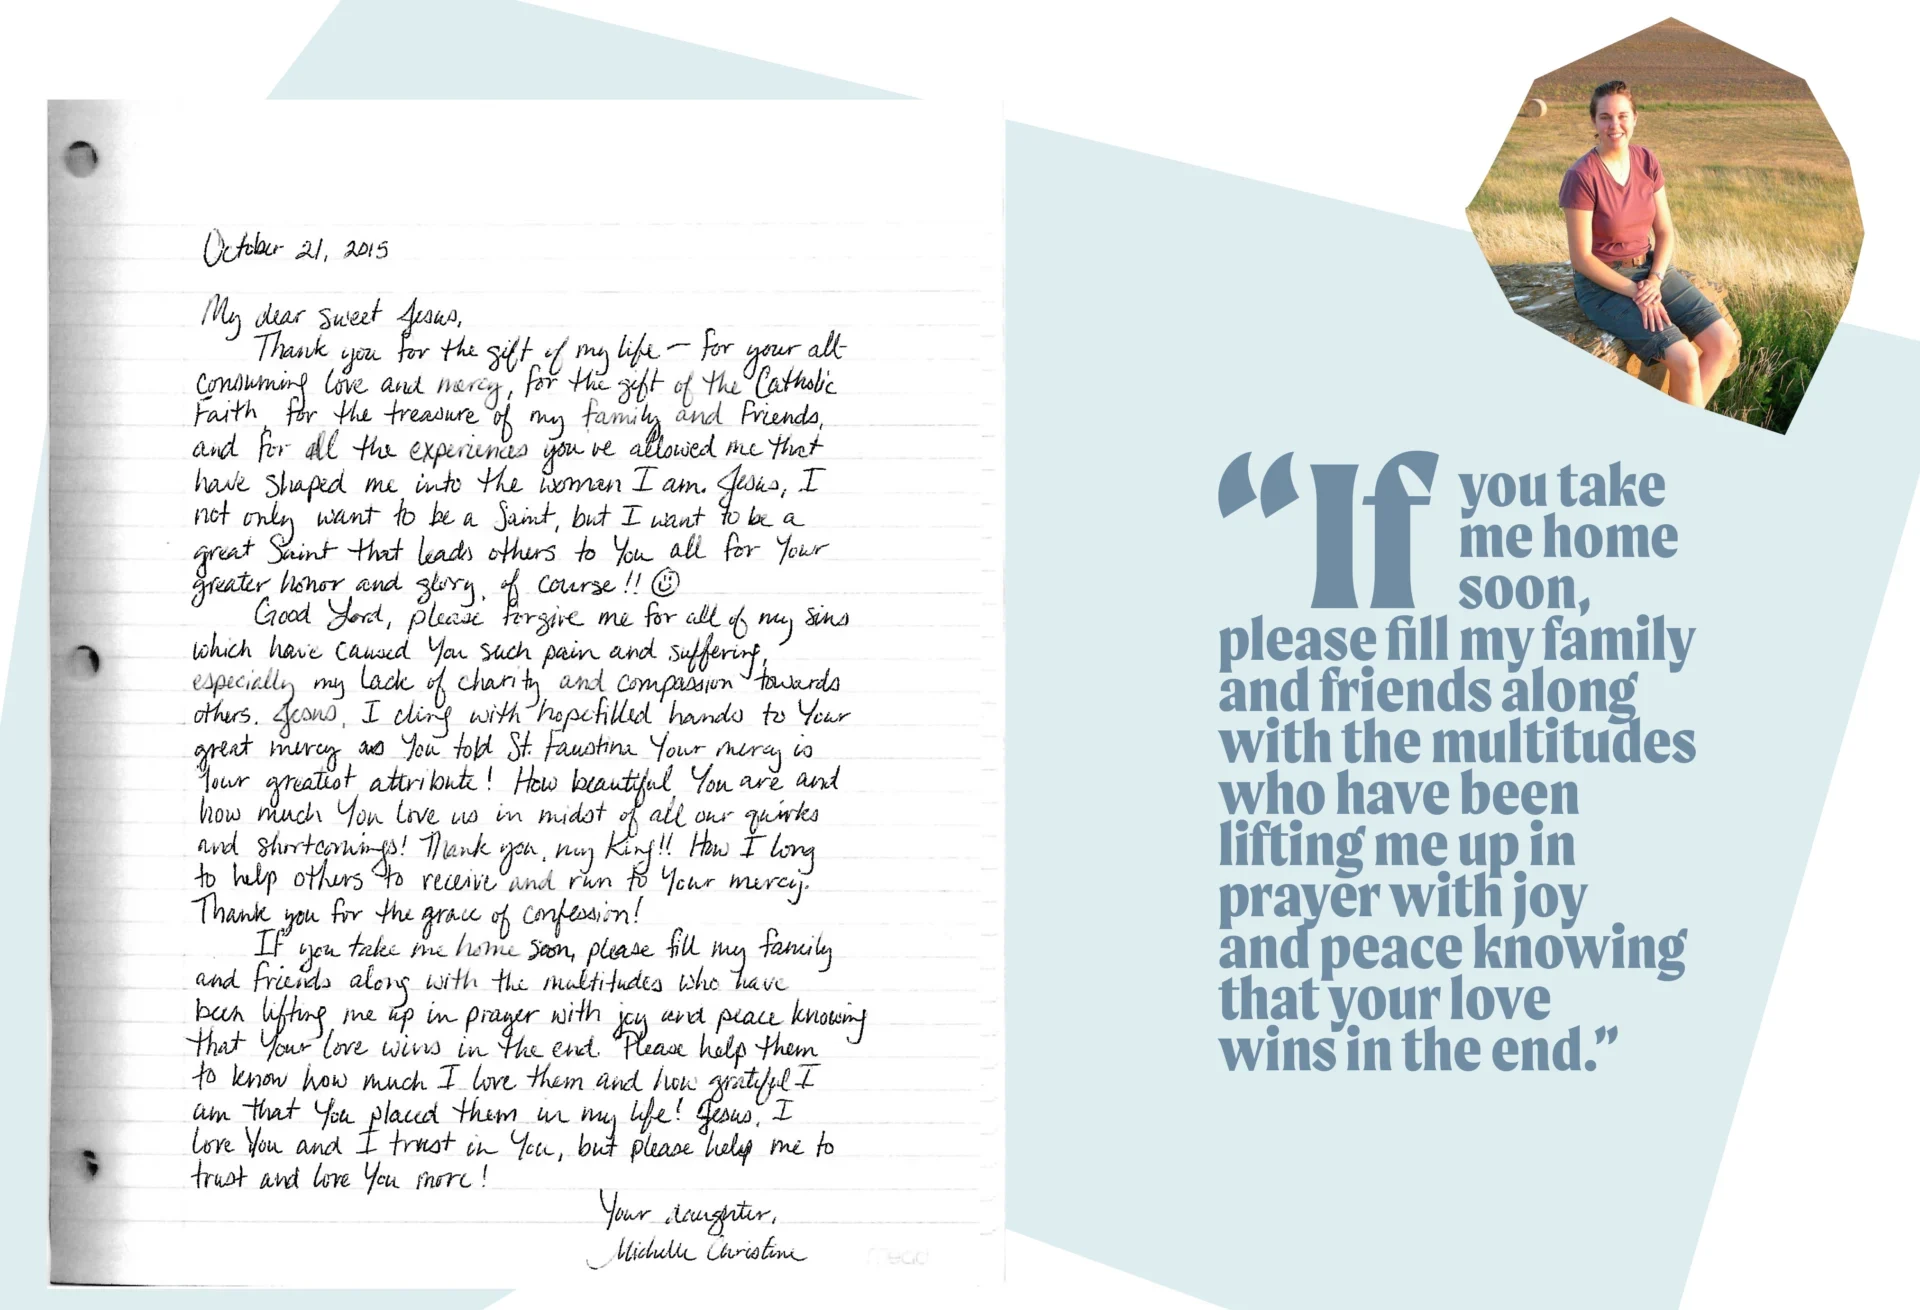 October 21, 2015
My dear sweet Jesus,
Thank you for the gift of my life — for your all-
consuming love and mercy, for the gift of the Catholic
Faith, for the treasure of my family and friends,
and for all the experiences you've allowed me that
have shaped me into the woman I am. Jesus, I
not only want to be a Saint, but I want to be a
great Saint that leads others to You all for Your
greater honor and glory, of course!! ☺
Good Lord, please forgive me for all of my sins
which have caused You such pain and suffering,
especially my lack of charity and compassion towards
others. Jesus, I cling with hopefilled hands to Your
great mercy as You told St. Faustina Your mercy is
Your greatest attribute! How beautiful You are and
how much You love us in midst of all our quirks
and shortcomings! Thank you, my King!! How I long
to help others to receive and run to Your mercy.
Thank you for the grace of confession!
If you take me home soon, please fill my family
and friends along with the multitudes who have
been lifting me up in prayer with joy and peace knowing
that Your love wins in the end. Please help them
to know how much I love them and how grateful I
am that You placed them in my life! Jesus, I
love You and I trust in You, but please help me to
trust and love You more!
Your daughter,
Michelle Christine
Mead
“If you take
me home
soon,
please fill my family
and friends along
with the multitudes
who have been
lifting me up in
prayer with joy
and peace knowing
that your love
wins in the end.”